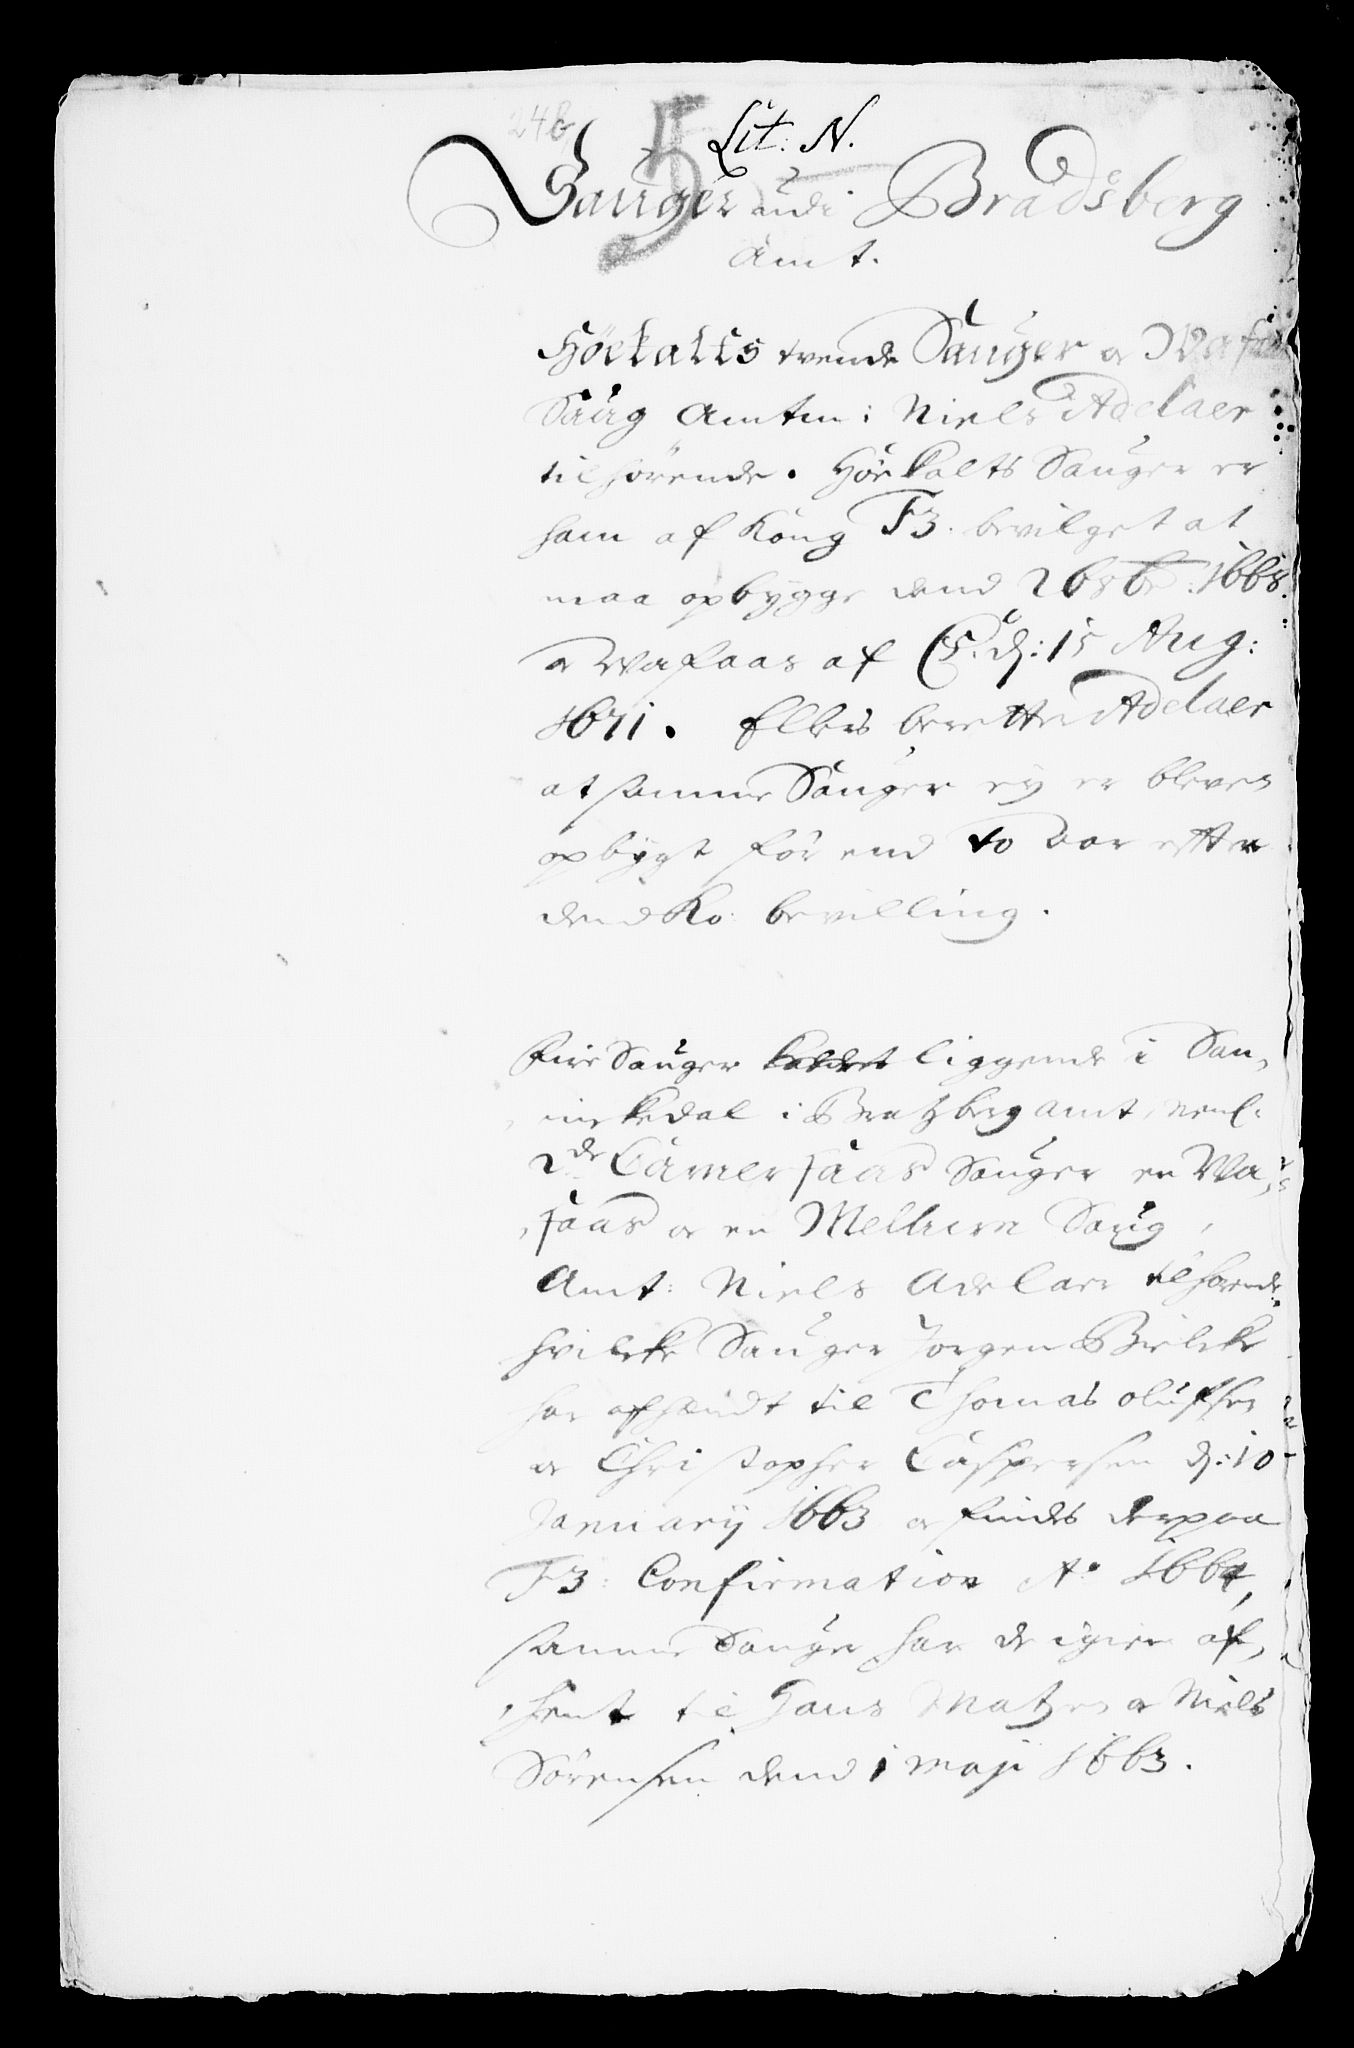 24b
5
Lit: N.
Sauger udi Bradsberg
Amt.
Höekalts tvende Sauger o Wafaas
Saug Amtm: Niels Adelaer
tilhörende. Höekalts Sauger er
ham af Kong F3. bevilget at
maa opbygge dend 2 8br: 1668.
o Wafaas af C5. d: 15 Aug:
1671. Ellers beretter Adelaer
at samme Sauger ey er bleven
opbygt för end to Aar efter
dend Ko: bevilling.
Fire Sauger liggende i San-
nikedal i Bratzberg Amt, nembl:
2de Camerfaas Sauger en Wa-
faas o en Mellum Saug,
Amt: Niels Adelaer tilhörende:
hvilcke Sauger Jörgen Bielcke
har afhændt til Thomas Olufsen
o Christopher Caspersen d: 10
January 1663 o findes derpaa
F3: Confirmation Ao 1664,
samme Sauger har de igien af-
hendt til Hans Matzen o Niels
Sörensen dend 1 Maji 1663.